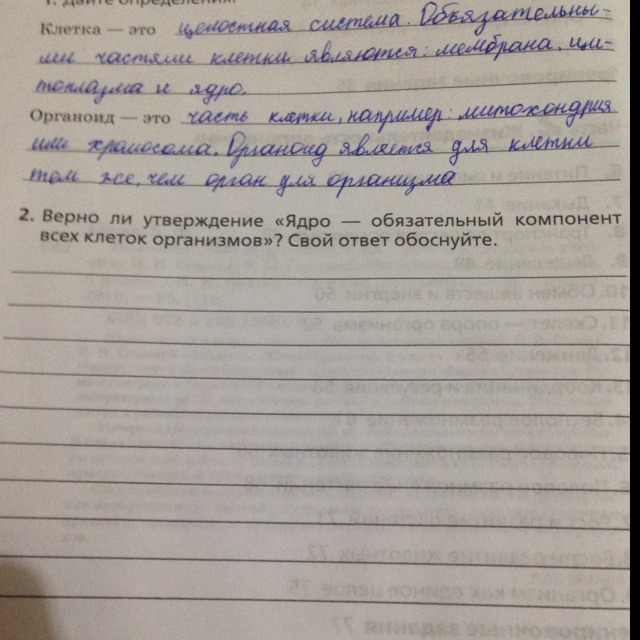 1. Дайте определения.
Клетка — это целостная система. Обязательны-
ми частями клетки являются: мембрана, ци-
топлазма и ядро.
Органоид — это часть клетки, например: митохондрия
или хромосома. Органоид является для клетки
тем же, чем орган для организма
2. Верно ли утверждение «Ядро — обязательный компонент
всех клеток организмов»? Свой ответ обоснуйте.